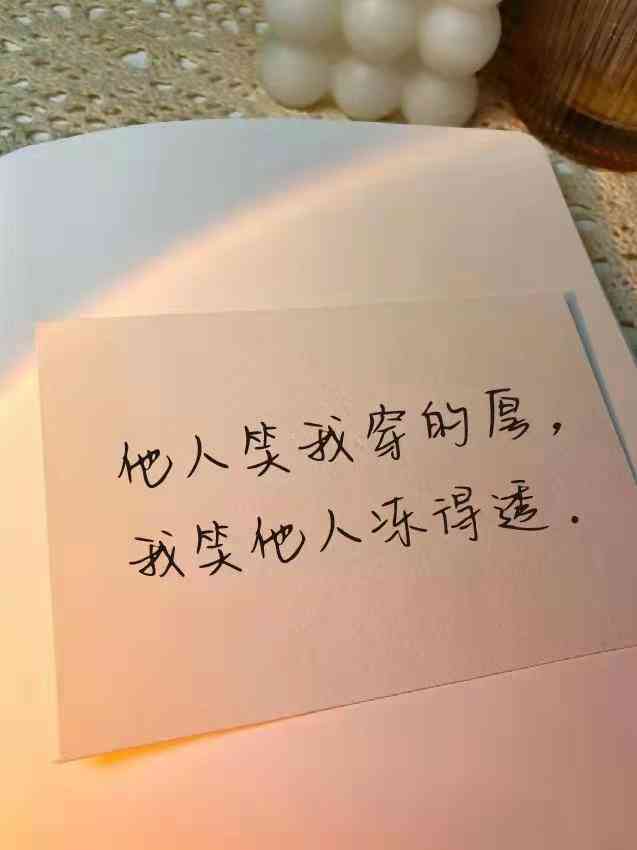 他人笑我穿的厚,
我笑他人冻得透.